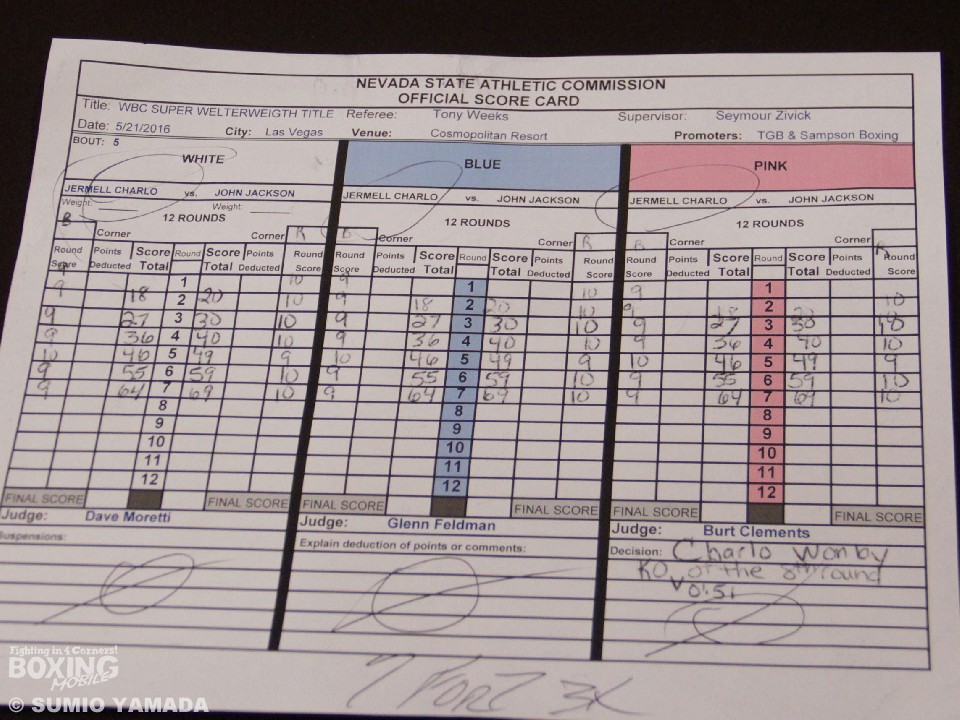 NEVADA STATE ATHLETIC COMMISSION
OFFICIAL SCORE CARD
Title: WBC SUPER WELTERWEIGTH TITLE Referee: Tony Weeks Supervisor: Seymour Zivick
Date: 5/21/2016 City: Las Vegas Venue: Cosmopolitan Resort Promoters: TGB & Sampson Boxing
BOUT: 5
WHITE BLUE PINK
JERMELL CHARLO vs. JOHN JACKSON JERMELL CHARLO vs. JOHN JACKSON JERMELL CHARLO vs. JOHN JACKSON
Weight: Weight:
12 ROUNDS 12 ROUNDS 12 ROUNDS
B Corner Corner R B Corner Corner R B Corner Corner R
Round Score Points Deducted Score Total Round Score Total Points Deducted Round Score Round Score Points Deducted Score Total Round Score Total Points Deducted Round Score Round Score Points Deducted Score Total Round Score Total Points Deducted Round Score
9 1 10 9 1 10 9 1 10
9 18 2 20 10 9 18 2 20 10 9 18 2 20 10
9 27 3 30 10 9 27 3 30 10 9 27 3 30 10
9 36 4 40 10 9 36 4 40 10 9 36 4 40 10
10 46 5 49 9 10 46 5 49 9 10 46 5 49 9
9 55 6 59 10 9 55 6 59 10 9 55 6 59 10
9 64 7 69 10 9 64 7 69 10 9 64 7 69 10
8 8 8
9 9 9
10 10 10
11 11 11
12 12 12
FINAL SCORE FINAL SCORE FINAL SCORE FINAL SCORE FINAL SCORE FINAL SCORE
Judge: Dave Moretti Judge: Glenn Feldman Judge: Burt Clements
Suspensions: Explain deduction of points or comments: Decision: Charlo Won by
KO of the 8th round
0:51
7 For 7 3X
Fighting in 4 Corners!
BOXING
MOBILE
© SUMIO YAMADA